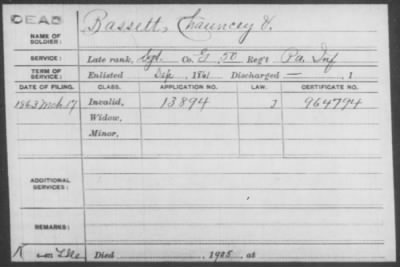 DEAD
NAME OF SOLDIER: Bassett, Chauncey V.
SERVICE: Late rank, Sgt. Co. G, 50 Reg't Pa. Inf
TERM OF SERVICE: Enlisted Sep. , 1861 Discharged — , 1
DATE OF FILING. CLASS. APPLICATION NO. LAW. CERTIFICATE NO.
1863 Mch 17 Invalid, 13894 964794
Widow,
Minor,
ADDITIONAL SERVICES:
REMARKS:
Died , 1905, at